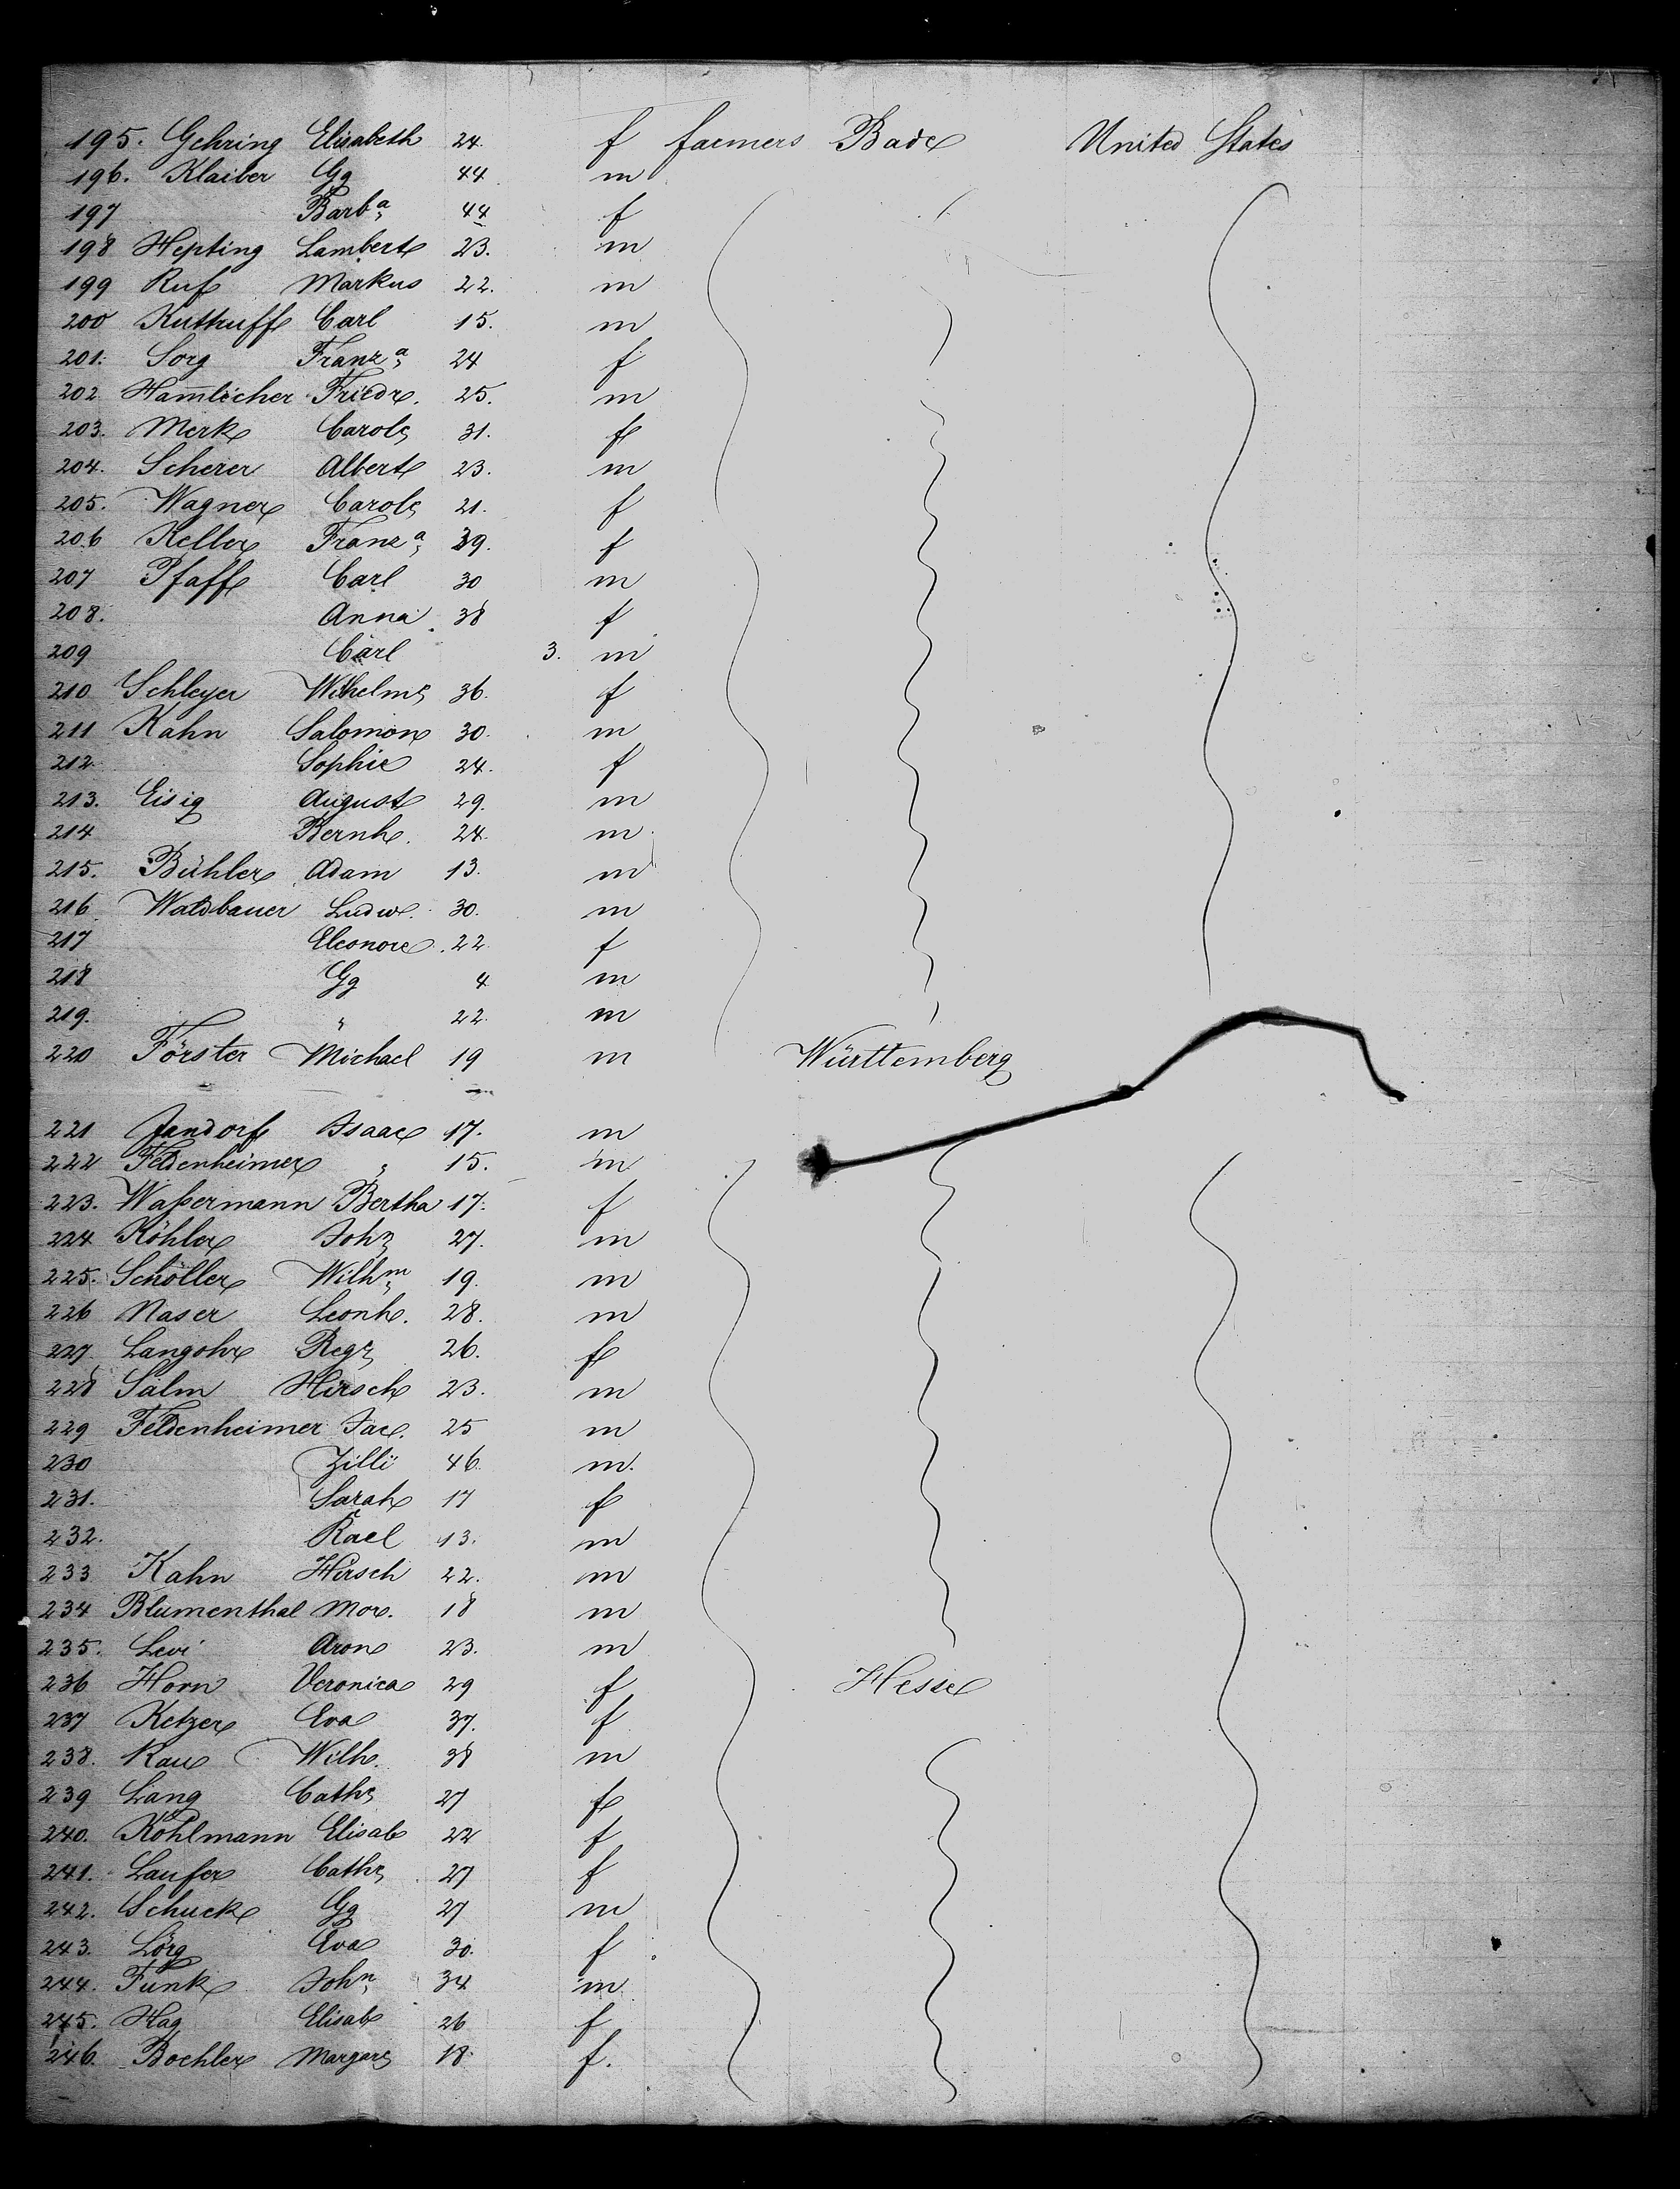 195. Gehring Elisabeth 24. f farmers Bade United States
196. Klaiber Gg 44 m
197 Barbª 44 f
198 Hepting Lambert 23. m
199 Ruf Markus 22. m
200 Kuthuff Carl 15. m
201. Sorg Franzª 24 f
202. Ham̅licher Friedr. 25. m
203. Merk Carole 31. f
204. Scherer Albert 23. m
205. Wagner Carole 21. f
206 Keller Franzª 39. f
207 Pfaff Carl 30 m
208. Anna 38 f
209 Carl 3. m
210 Schleyer Wilhelme 36. f
211 Kahn Salomon 30. m
212. Sophie 24. f
213. Eisig August 29. m
214 Bernh. 24. m
215. Bühler Adam 13. m
216. Waldbauer Ludw. 30. m
217 Eleonore 22. f
218 Gg 4 m
219. " 22. m
220 Förster Michael 19 m Württemberg
221 Jandorf Isaac 17. m
222 Feldenheimer " 15. m
223. Waßermann Bertha 17. f
224 Köhler John 27. m
225. Schöller Wilhm 19. m
226 Naser Leonh. 28. m
227. Langohr Rega 26. f
228 Salm Hirsch 23. m
229 Feldenheimer Jac. 25 m
230 Zilli 46. m.
231. Sarah 17 f
232. Kael 13. m
233 Kahn Hirsch 22. m
234 Blumenthal Mor. 18 m
235. Levi Aron 23. m
236 Horn Veronica 29 f Hesse
237 Ketzer Eva 37. f
238. Rau Wilh. 38 m
239 Lang Cathe 27 f
240. Köhlmann Elisab 22 f
241. Laufer Cathe 27 f
242. Schuck Gg 27 m
243. Lörg Eva 30. f
244. Funk Johⁿ 34 m
245. Hag Elisab 26 f
246. Boehler Margare 18. f.